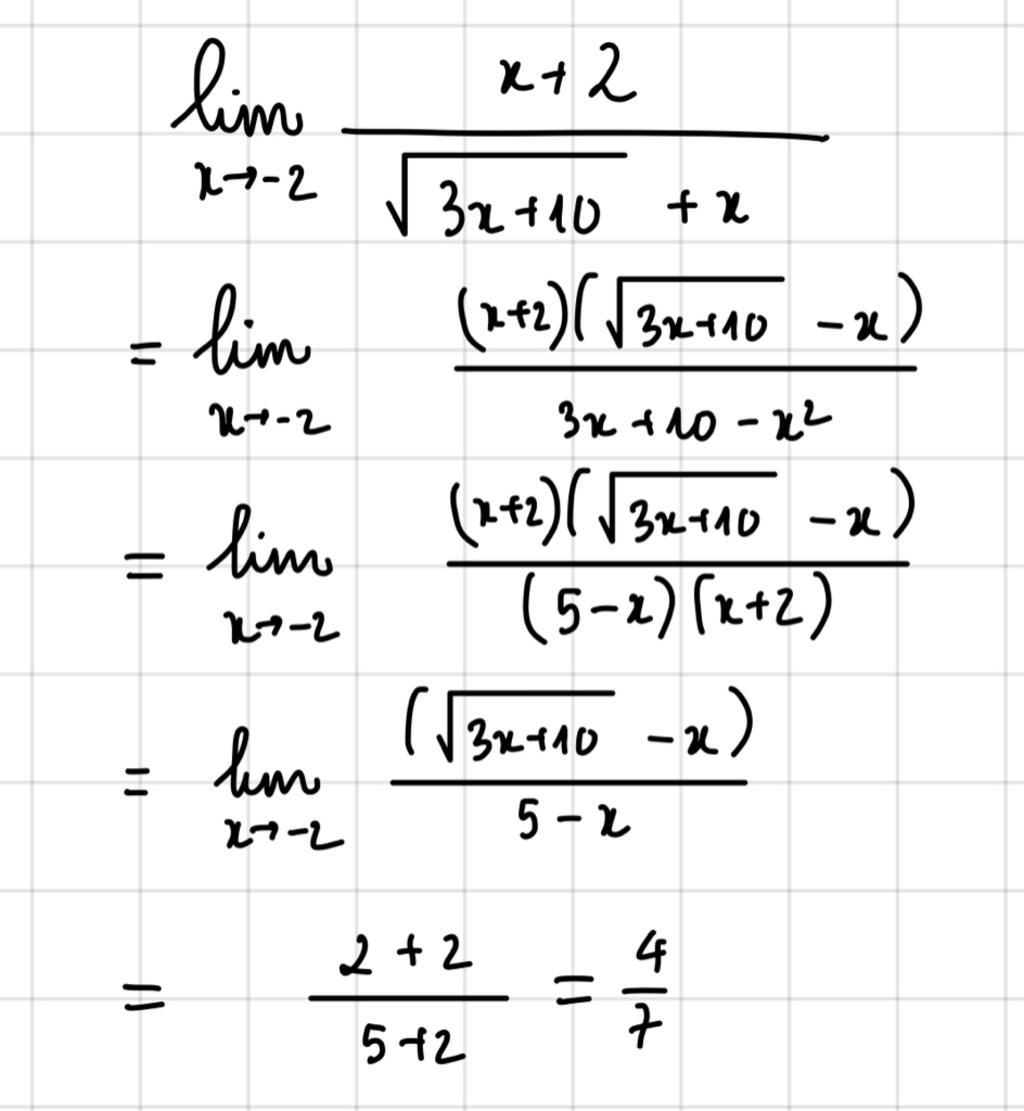 lim x→-2 (x+2)/(√(3x+10) + x)
= lim x→-2 ((x+2)(√(3x+10) - x))/(3x+10-x²)
= lim x→-2 ((x+2)(√(3x+10) - x))/((5-x)(x+2))
= lim x→-2 (√(3x+10) - x)/(5-x)
= (2+2)/(5+2) = 4/7